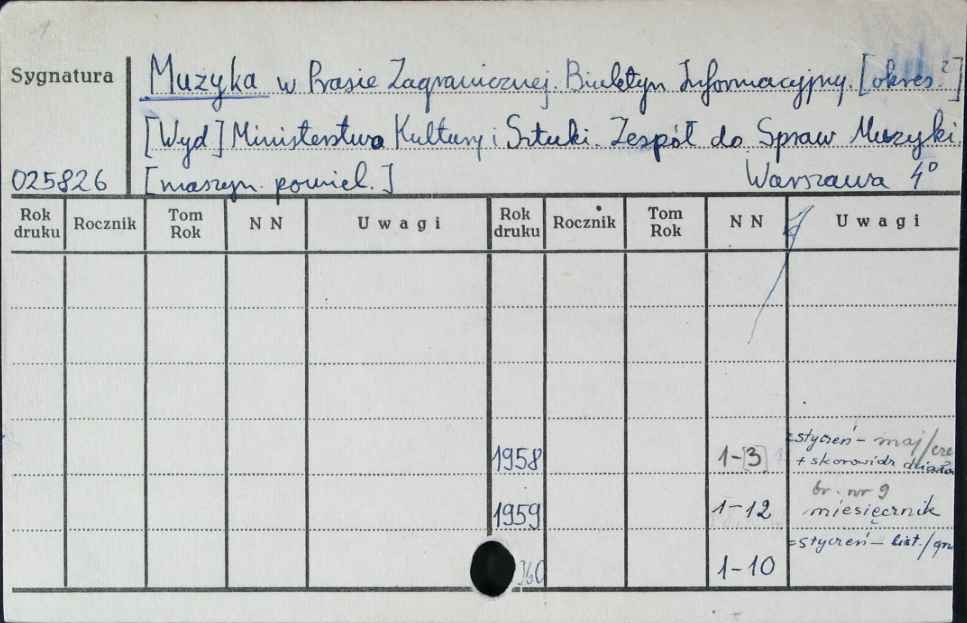 Sygnatura
Muzyka w Prasie Zagranicznej. Biuletyn Informacyjny. [okres.?]
[Wyd] Ministerstwo Kultury i Sztuki. Zespół do Spraw Muzyki.
025826 [maszyn. powiel.] Warszawa 4°
Rok druku Rocznik Tom Rok NN Uwagi Rok druku Rocznik Tom Rok NN Uwagi
=styczeń - maj/cze
1958 1-[3] + skorowidz działow
br. nr 9
1959 1-12 miesięcznik
=styczeń - list./gru
]60 1-10